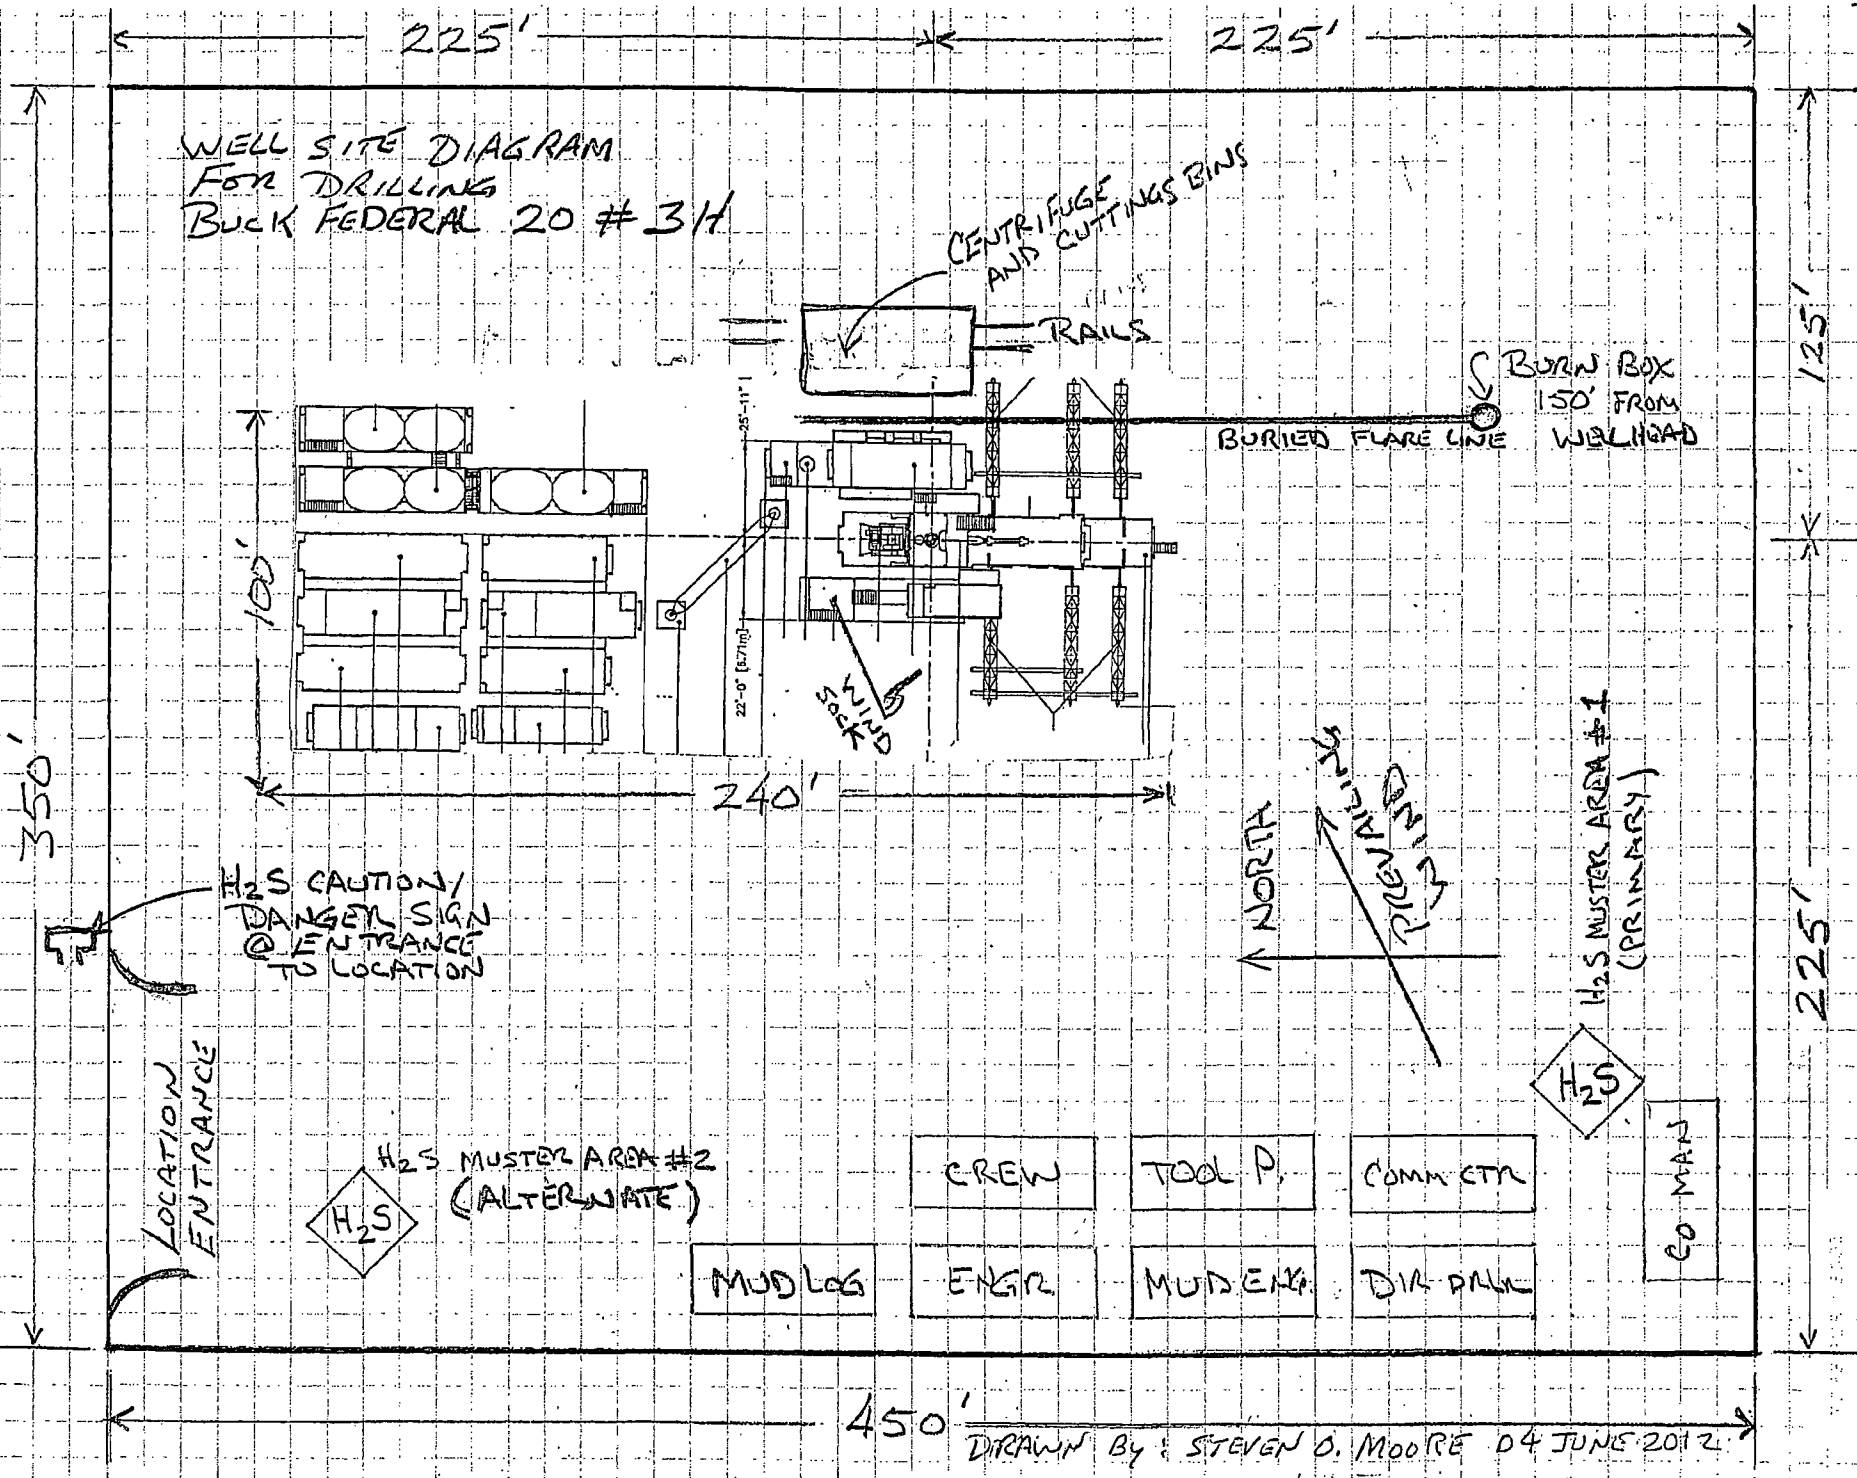 225'
225'
WELL SITE DIAGRAM
FOR DRILLING
BUCK FEDERAL 20 # 3H
CENTRIFUGE
AND CUTTINGS BINS
RAILS
125'
BURN BOX
150' FROM
WELLHEAD
BURIED FLARE LINE
25'-11"
100'
22'-0" [6.71m]
WIND
SOCK
240'
350'
H2S CAUTION/
DANGER SIGN
@ ENTRANCE
TO LOCATION
NORTH
PREVAILING
WIND
H2S MUSTER AREA #1
(PRIMARY)
225'
H2S
LOCATION
ENTRANCE
H2S MUSTER AREA #2
(ALTERNATE)
H2S
CREW
TOOL P.
COMM CTR
CO MAN
MUD LOG
ENGR
MUD ENG.
DIR DRLR
450'
DRAWN By: STEVEN O. MOORE 04 JUNE 2012